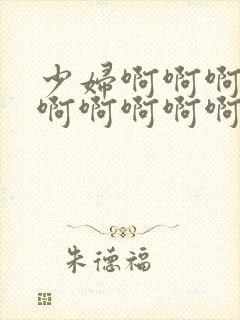 少婦啊啊啊
啊啊啊啊啊
朱德福